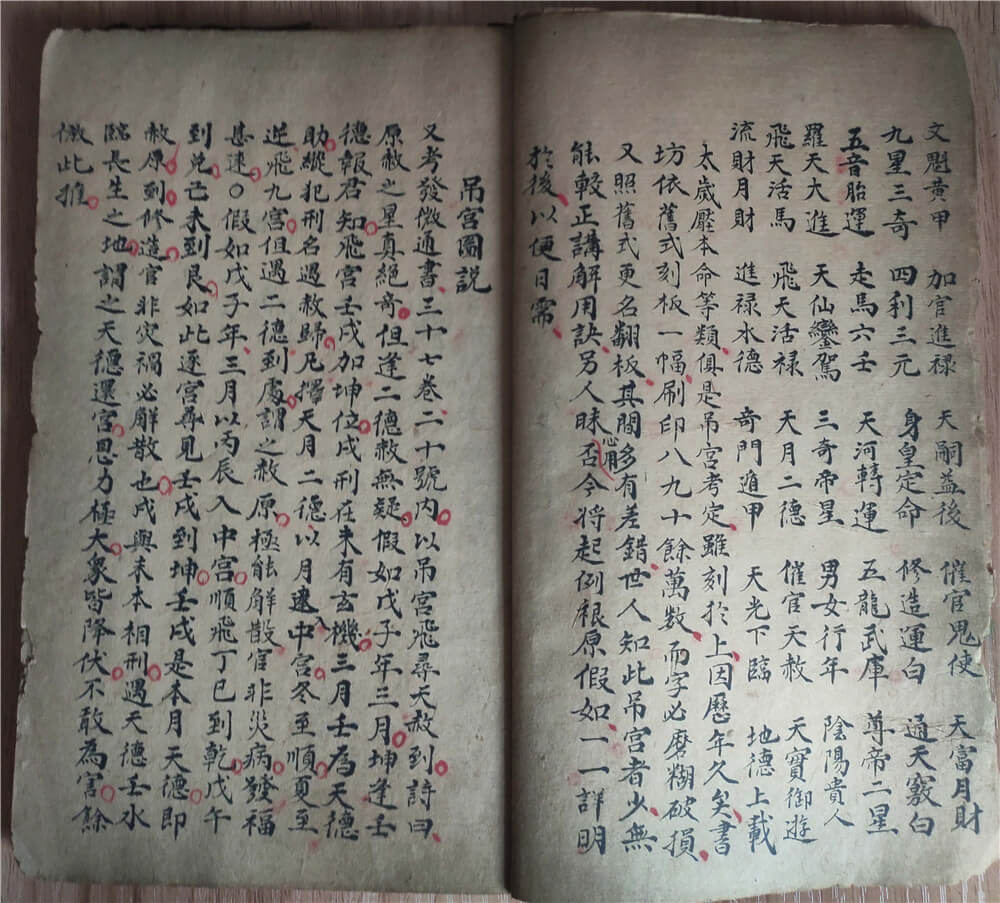 文魁黃甲 加官進祿 天嗣益後 催官鬼使 天富月財
九星三奇 四利三元 身皇定命 修造運白 通天竅白
五音胎運 走馬六壬 天河轉運 五龍武庫 尊帝二星
羅天大進 天仙鑾駕 三奇帝星 男女行年 陰陽貴人
飛天活馬 飛天活祿 天月二德 催官天赦 天寶御遊
流財月財 進祿水德 奇門遁甲 天光下臨 地德上載
太歲壓本命等類俱是吊宮考定雖刻於上因歷年久矣書
坊依舊式刻板一幅刷印八九十餘萬數而字必磨糊破損
又照舊式更名翻板其間多有差錯世人知此吊宮者少無
能較正講解用訣另人昧否今將起例根原假如一一詳明
於後以便日需
吊宮圖説
又考發微通書三十七卷二十號內以吊宮飛尋天赦到詩曰
原赦之星真絕奇但逢二德赦無疑假如戊子年三月坤逢壬
德報君知飛宮壬戌加坤位戌刑在未有玄機三月壬為天德
助縱犯刑名遇赦歸凡擇天月二德以月建入中宮冬至順夏至
逆飛九宮但遇二德到處謂之赦原極能解散官非災病發福
甚速○假如戊子年三月以丙辰入中宮順飛丁巳到乾戊午
到兌己未到艮如此逐宮尋見壬戌到坤壬戌是本月天德即
赦原到修造官非灾禍必解散也戌與未本相刑遇天德壬水
臨長生之地謂之天德還宮恩力極大衆皆降伏不敢為害餘
倣此推